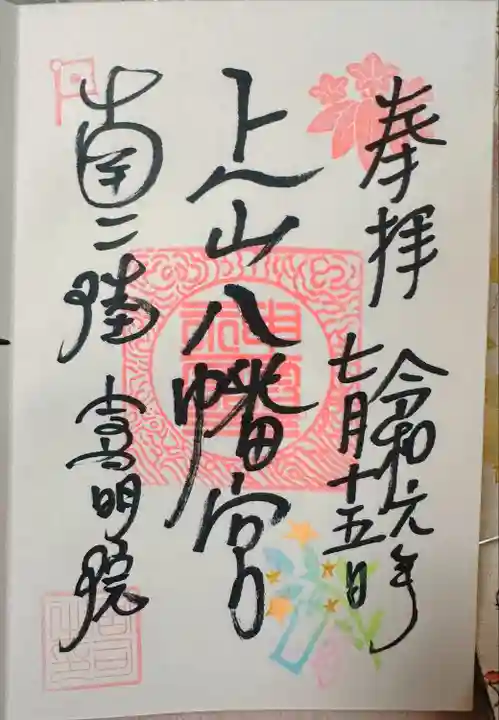 奉拝
令和元年
七月十五日
上山八幡宮
南三陸 高明院